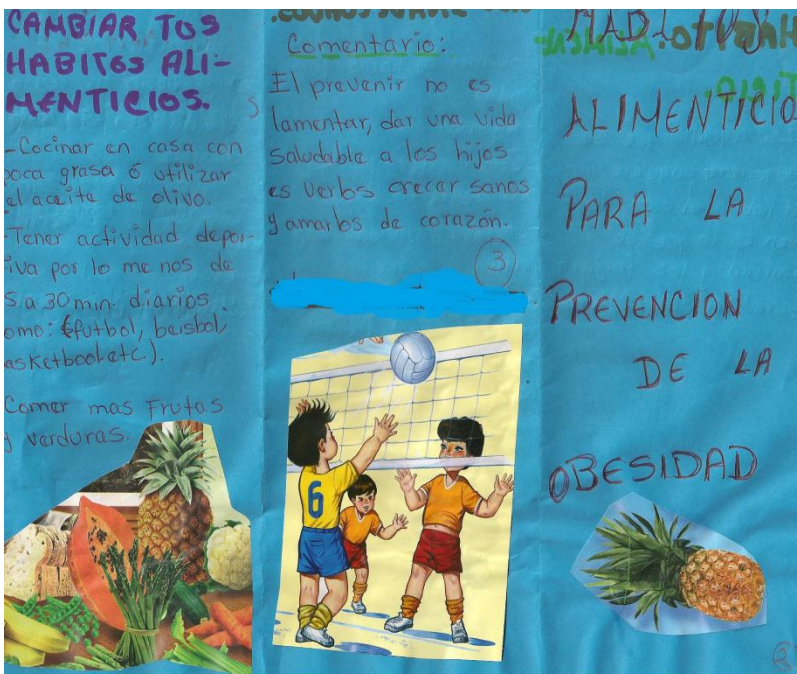 CAMBIAR TUS
HABITOS ALI-
MENTICIOS.
-Cocinar en casa con
poca grasa ó utilizar
el aceite de olivo.
-Tener actividad depor-
iva por lo menos de
5 a 30 min. diarios
omo: (futbol, beisbol,
asketbool etc.).
Comer mas Frutas
y verduras.
Comentario:
El prevenir no es
lamentar, dar una vida
Saludable a los hijos
es verlos crecer sanos
y amarlos de corazón.
3
6
HABITOS
ALIMENTICIO
PARA LA
PREVENCION
DE LA
OBESIDAD
2